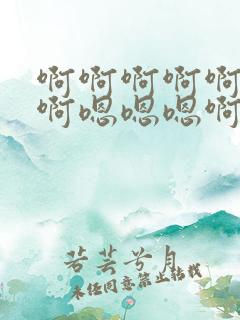 啊啊啊啊啊
啊嗯嗯嗯啊
若芸兮月
未经同意禁止转载